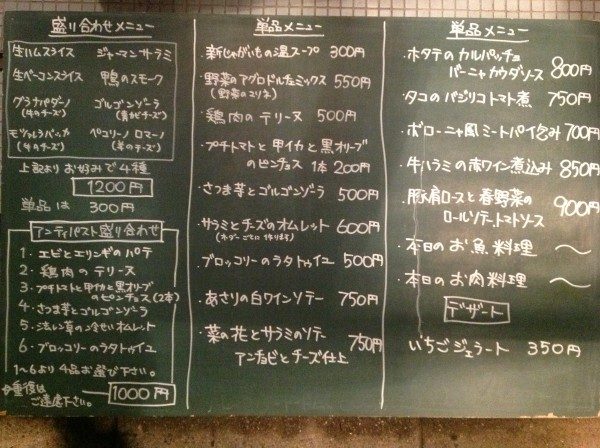 盛り合わせメニュー
生ハムスライス ジャーマンサラミ
生ベーコンスライス 鴨のスモーク
グラナパダーノ ゴルゴンゾーラ
(牛のチーズ) (青カビチーズ)
モッツァレラバッカ ペコリーノ ロマーノ
(牛のチーズ) (羊のチーズ)
上記より お好みで 4種
1200円
単品は 300円
アンティパスト盛り合わせ
1. エビとエリンギのパテ
2. 鶏肉のテリーヌ
3. プチトマトと甲イカと黒オリーブ
のピンチョス(2本)
4. さつま芋とゴルゴンゾーラ
5. 法レン草の冷せいオムレット
6. ブロッコリーのラタトゥイユ
1〜6より 4品お選び下さい。
重複は
ご遠慮下さい。
1000円
単品メニュー
・新じゃがいもの温スープ 300円
・野菜のアグロドルチェミックス 550円
(野菜のマリネ)
・鶏肉のテリーヌ 500円
・プチトマトと甲イカと黒オリーブ
のピンチョス 1本 200円
・さつま芋とゴルゴンゾーラ 500円
・サラミとチーズのオムレット 600円
(オーダーごとに作ります)
・ブロッコリーのラタトゥイユ 500円
・あさりの白ワインソテー 750円
・菜の花とサラミのソテー 750円
アンチョビとチーズ仕上
単品メニュー
・ホタテのカルパッチョ
バーニャカウダソース 800円
・タコのバジリコトマト煮 750円
・ボローニャ風ミートパイ包み 700円
・牛ハラミの赤ワイン煮込み 850円
・豚肩ロースと春野菜の
ロールソテートマトソース 900円
・本日のお魚料理 〜
・本日のお肉料理 〜
デザート
いちごジェラート 350円